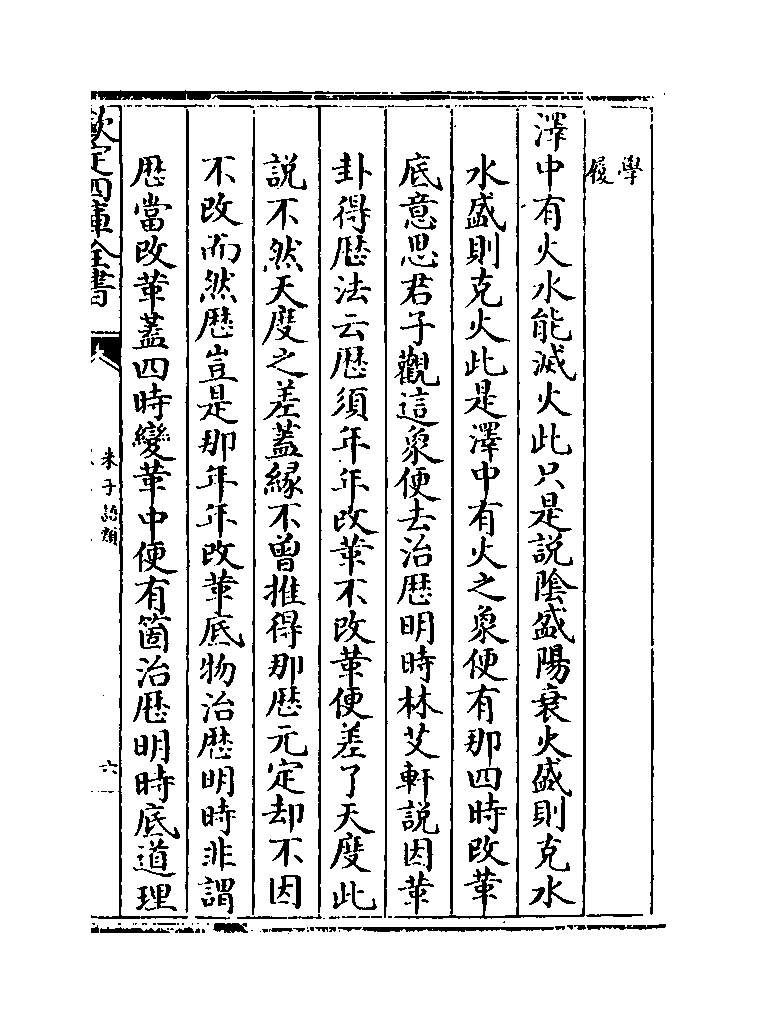 學
履
澤中有火水能滅火此只是說陰盛陽衰火盛則克水
水盛則克火此是澤中有火之象便有那四時改革
底意思君子觀這象便去治厯明時林艾軒說因革
卦得厯法云厯須年年改革不改革便差了天度此
說不然天度之差蓋緣不曾推得那厯元定却不因
不改而然厯豈是那年年改革底物治厯明時非謂
厯當改革蓋四時變革中便有箇治厯明時底道理
欽定四庫全書
朱子語類
六